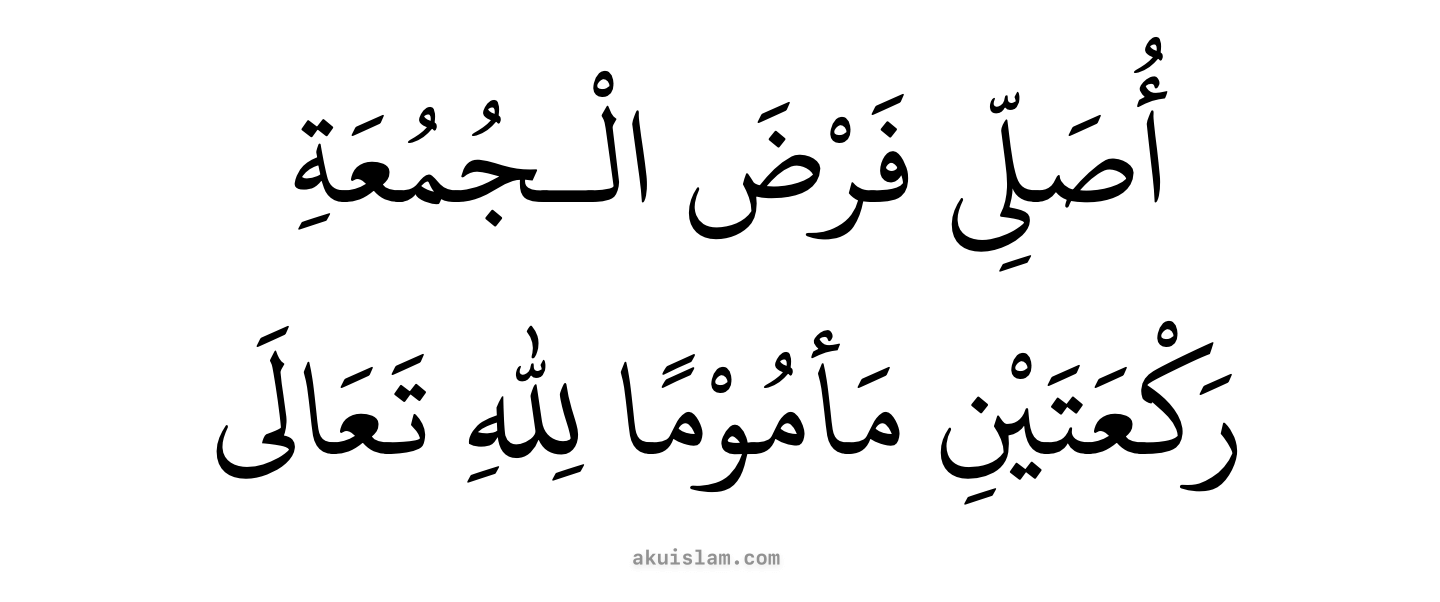 أُصَلِّى فَرْضَ الْـجُمُعَةِ
رَكْعَتَيْنِ مَأْمُوْمًا لِلّٰهِ تَعَالَى
akuislam.com